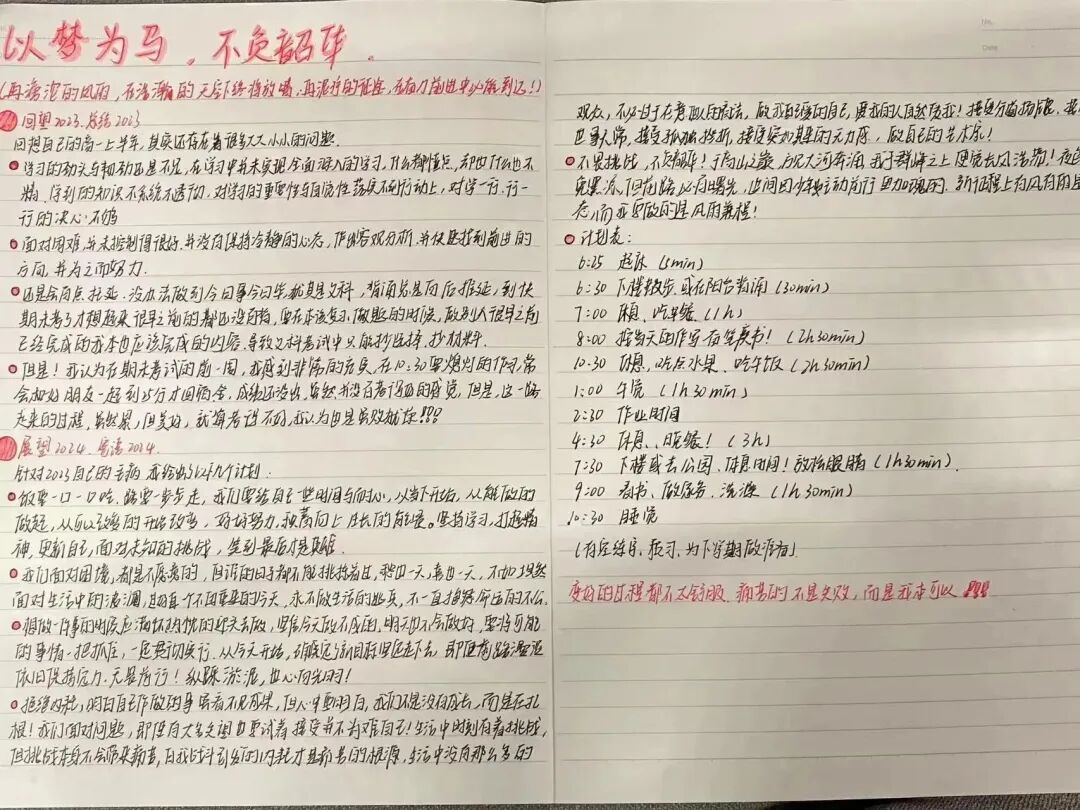 以梦为马，不负韶华。
(再滂沱的风雨，在浩瀚的天空下终将放晴，再泥泞的征途，在奋力前进中必能到达！)
回望2023.总结2023
回想自己的高一上半年，其实还存在着很多大大小小的问题.
学习的劲头与韧劲还是不足，在学习中并未实现全面深入的学习，什么都懂点，却也什么也不
精，得到的知识不系统不透彻，对学习的重要性与自觉性落实不到行动上，对学一行、行一
行的决心不够
面对困难，并未控制得很好.并没有保持冷静的心态，作出客观分析.并快速找到前进的
方向，并为之而努力.
还是会有点拖延.没办法做到今日事今日毕，尤其是文科，背诵总是向后推延，到快
期末考了才想起来很早之前的都还没有背，要在本该复习、做题的时候，做别人很早之前
已经完成的我本也应该完成的内容.导致文科考试中只能抄选择，抄材料.
但是！我认为在期末考试的前一周，我感到非常的充实，在10:30要熄灯的作下，常
会和好朋友一起到25分才回宿舍，成绩还没出，虽然并没有考得好的感觉，但是，这一路
走来的过程，虽然累，但美好，就算考得不好，我认为也是虽败犹荣！！！
展望2024.寄语2024.
针对2023自己的毛病，我给出了以下几个计划：
饭要一口一口吃，路要一步步走，我们要给自己一些时间与耐心，从当下开始，从能做的
做起，从可以改变的开始改变，好好努力，积蓄向上生长的能量。坚持学习，打起精
神，更新自己，面对未知的挑战，笑到最后才是英雄.
我们面对困境，都是不愿意的，但谁的日子都不能挑拣着过，愁也一天，喜也一天，不如坦然
面对生活中的波澜，过好每个不可重来的今天，永不做生活的逃兵，不一直抱怨命运的不公.
想做一件事的时候应满怀热忱的迎头去做，坚信今天做不成的，明天也不会做好，要将可能
的事情一把抓住，一定贯彻实行.从今天开始，朝既定的新目标坚定走下去，即便前路漫漫
依旧保持定力.无畏前行！纵踩淤泥，也心向光明！
拒绝内耗，明白自己作做的事虽看不见成果，但心中要明白，我们不是没有成长，而是在扎
根！我们面对问题，即便有大是交迫也要试着接受并不为难自己！生活中时刻有着挑战，
但挑战本身不会带来痛苦，自我战斗引发的内耗才是痛苦的根源，生活中没有那么多的
观众，不必过于在意他人的看法，做我自己的自己，爱我的人自然爱我！接受分道扬镳、接受
世事无常，接受孤独挫折，接受突如其来的无力感，做自己的艺术家！
不畏挑战，不负韶华！于高山之巅，方见大河奔涌，于群峰之上，更觉长风浩荡！夜色
竟黑添，但花路必有曙光，世间因少年挺身前行更加瑰丽.新征程上有风有雨是常
态，而我要做的是风雨兼程！
计划表：
6:25 起床 (5min)
6:30 下楼散步或在阳台背诵 (30min)
7:00 休息、吃早餐 (1h)
8:00 按当天的作写.有笔要书！(2h30min)
10:30 休息，吃点水果、吃午饭 (2h30min)
1:00 午觉 (1h30min)
2:30 作业时间
4:30 休息、晚餐！(3h)
7:30 下楼或去公园、休息时间！放松眼睛 (1h30min).
9:00 看书、做家务、洗漱 (1h30min)
10:30 睡觉
(自定练字、预习、为下学期做准备)
变好的过程都不太舒服、痛苦的不是失败，而是我本可以!!!
No.
Date